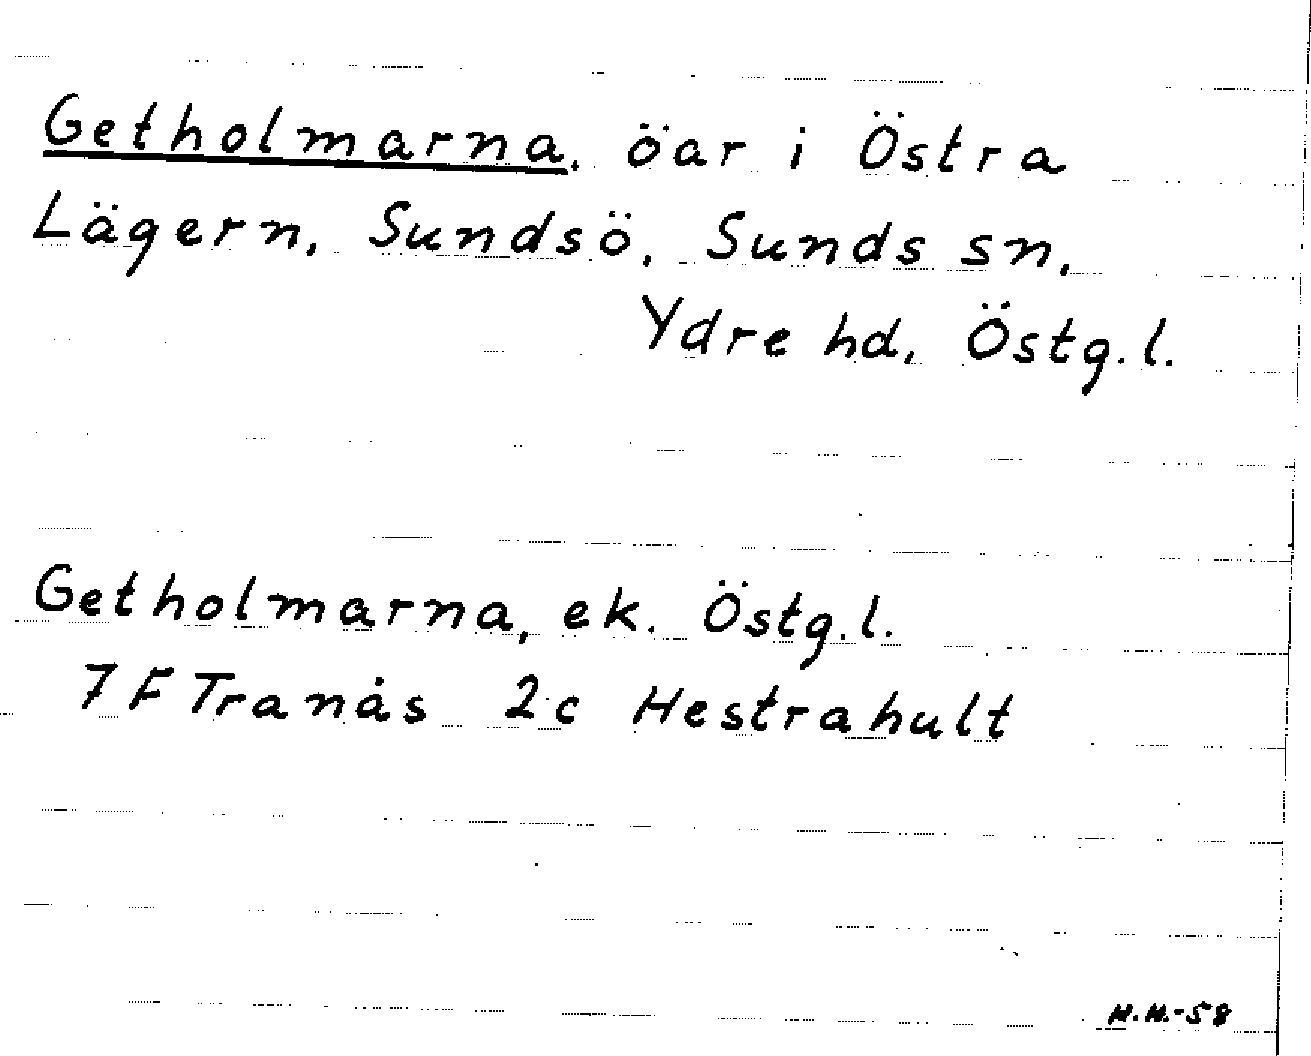 Getholmarna, öar i Östra
Lägern, Sundsö, Sunds sn,
Ydre hd, Östg.l.
Getholmarna, ek. Östg.l.
7F Tranås 2c Hestrahult
H.H.-58